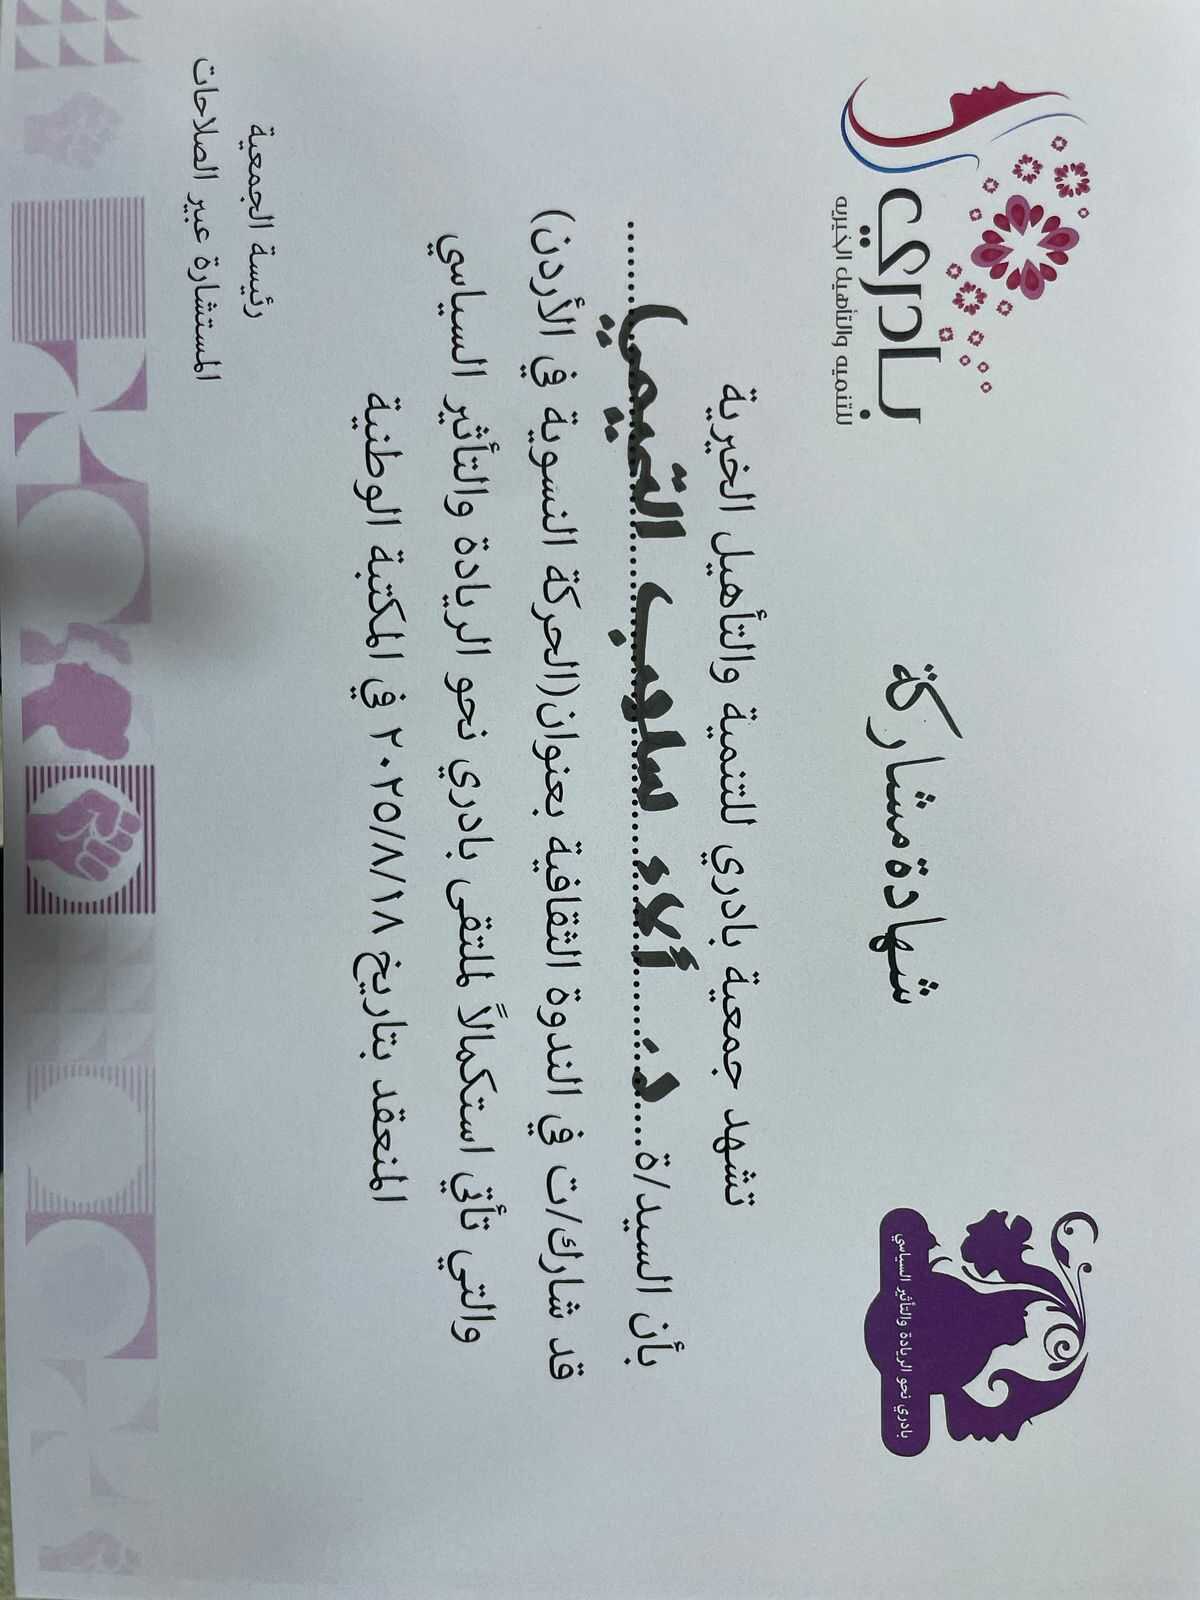 بادري
للتنميه والتأهيل الخيريه
بادري نحو الريادة والتأثير السياسي
شهادة مشاركة
تشهد جمعية بادري للتنمية والتأهيل الخيرية
بأن السيد/ة.....د. ألاء سلهب التميمي.....
قد شارك/ت في الندوة الثقافية بعنوان(الحركة النسوية في الأردن)
والتي تأتي استكمالاً لملتقى بادري نحو الريادة والتأثير السياسي
المنعقد بتاريخ ٢٠٢٥/٨/١٨ في المكتبة الوطنية
رئيسة الجمعية
المستشارة عبير الصلاحات